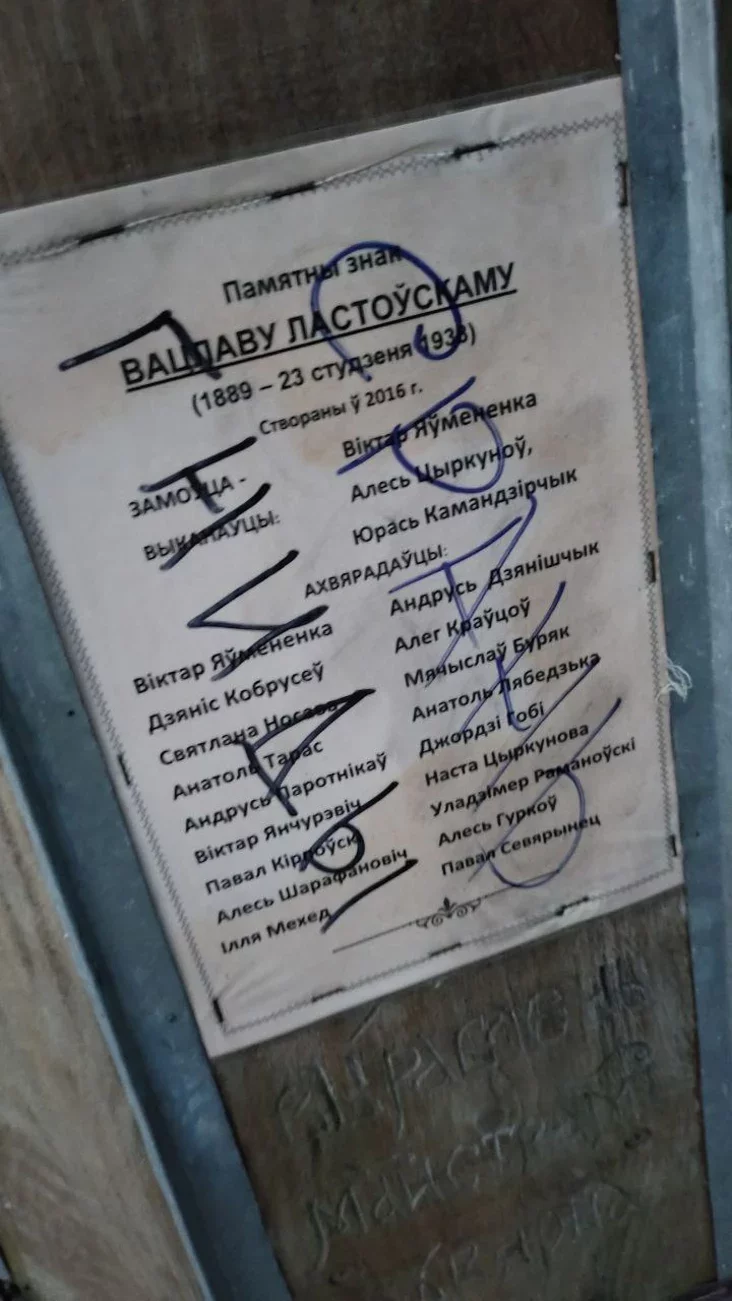 Памятны знак
ВАЦЛАВУ ЛАСТОЎСКАМУ
(1889 – 23 студзеня 1938)
Створаны ў 2016 г.
ЗАМОЎЦА - Віктар Яўмененка
ВЫКАНАЎЦЫ: Алесь Цыркуноў,
Юрась Камандзірчык
АХВЯРАДАЎЦЫ:
Віктар Яўмененка
Дзяніс Кобрусеў
Святлана Носава
Анатоль Тарас
Андрусь Паротнікаў
Віктар Янчурэвіч
Павал Кірпоўскі
Алесь Шарафановіч
Ілля Мехед
Андрусь Дзянішчык
Алег Краўцоў
Мячыслаў Буряк
Анатоль Лябедзька
Джордзі Гобі
Наста Цыркунова
Уладзімер Раманоўскі
Алесь Гуркоў
Павал Севярынец